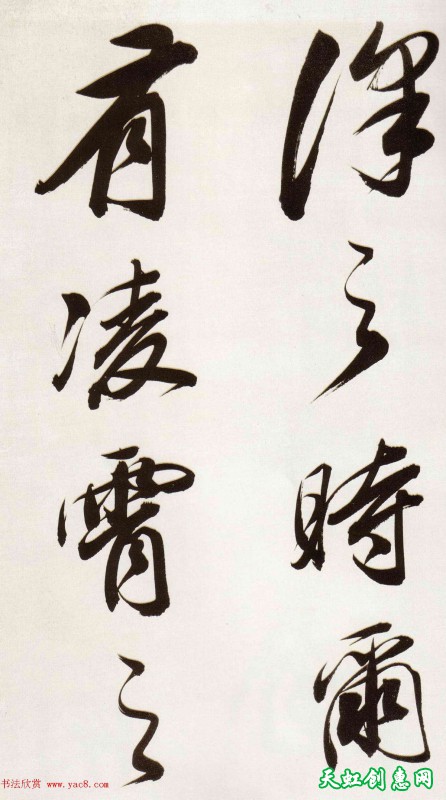 之時爾
有凌霄之
书法欣赏 www.yac8.com
天虹创惠网